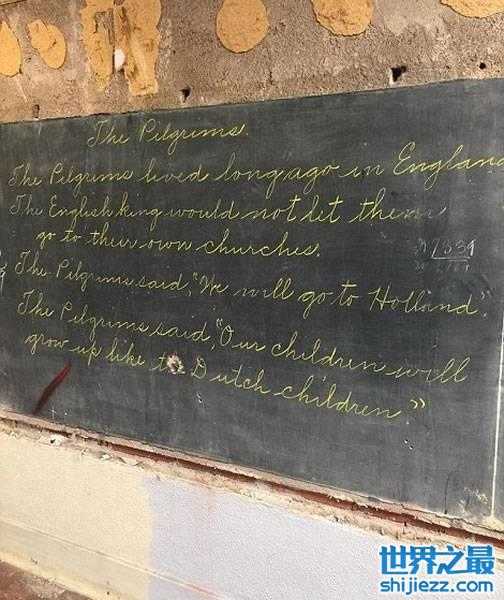 The Pilgrims.
The Pilgrims lived long ago in England
The English king would not let them
go to their own churches.
The Pilgrims said, "We will go to Holland."
The Pilgrims said, "Our children will
grow up like the Dutch children."
世界之最
shijiezz.com